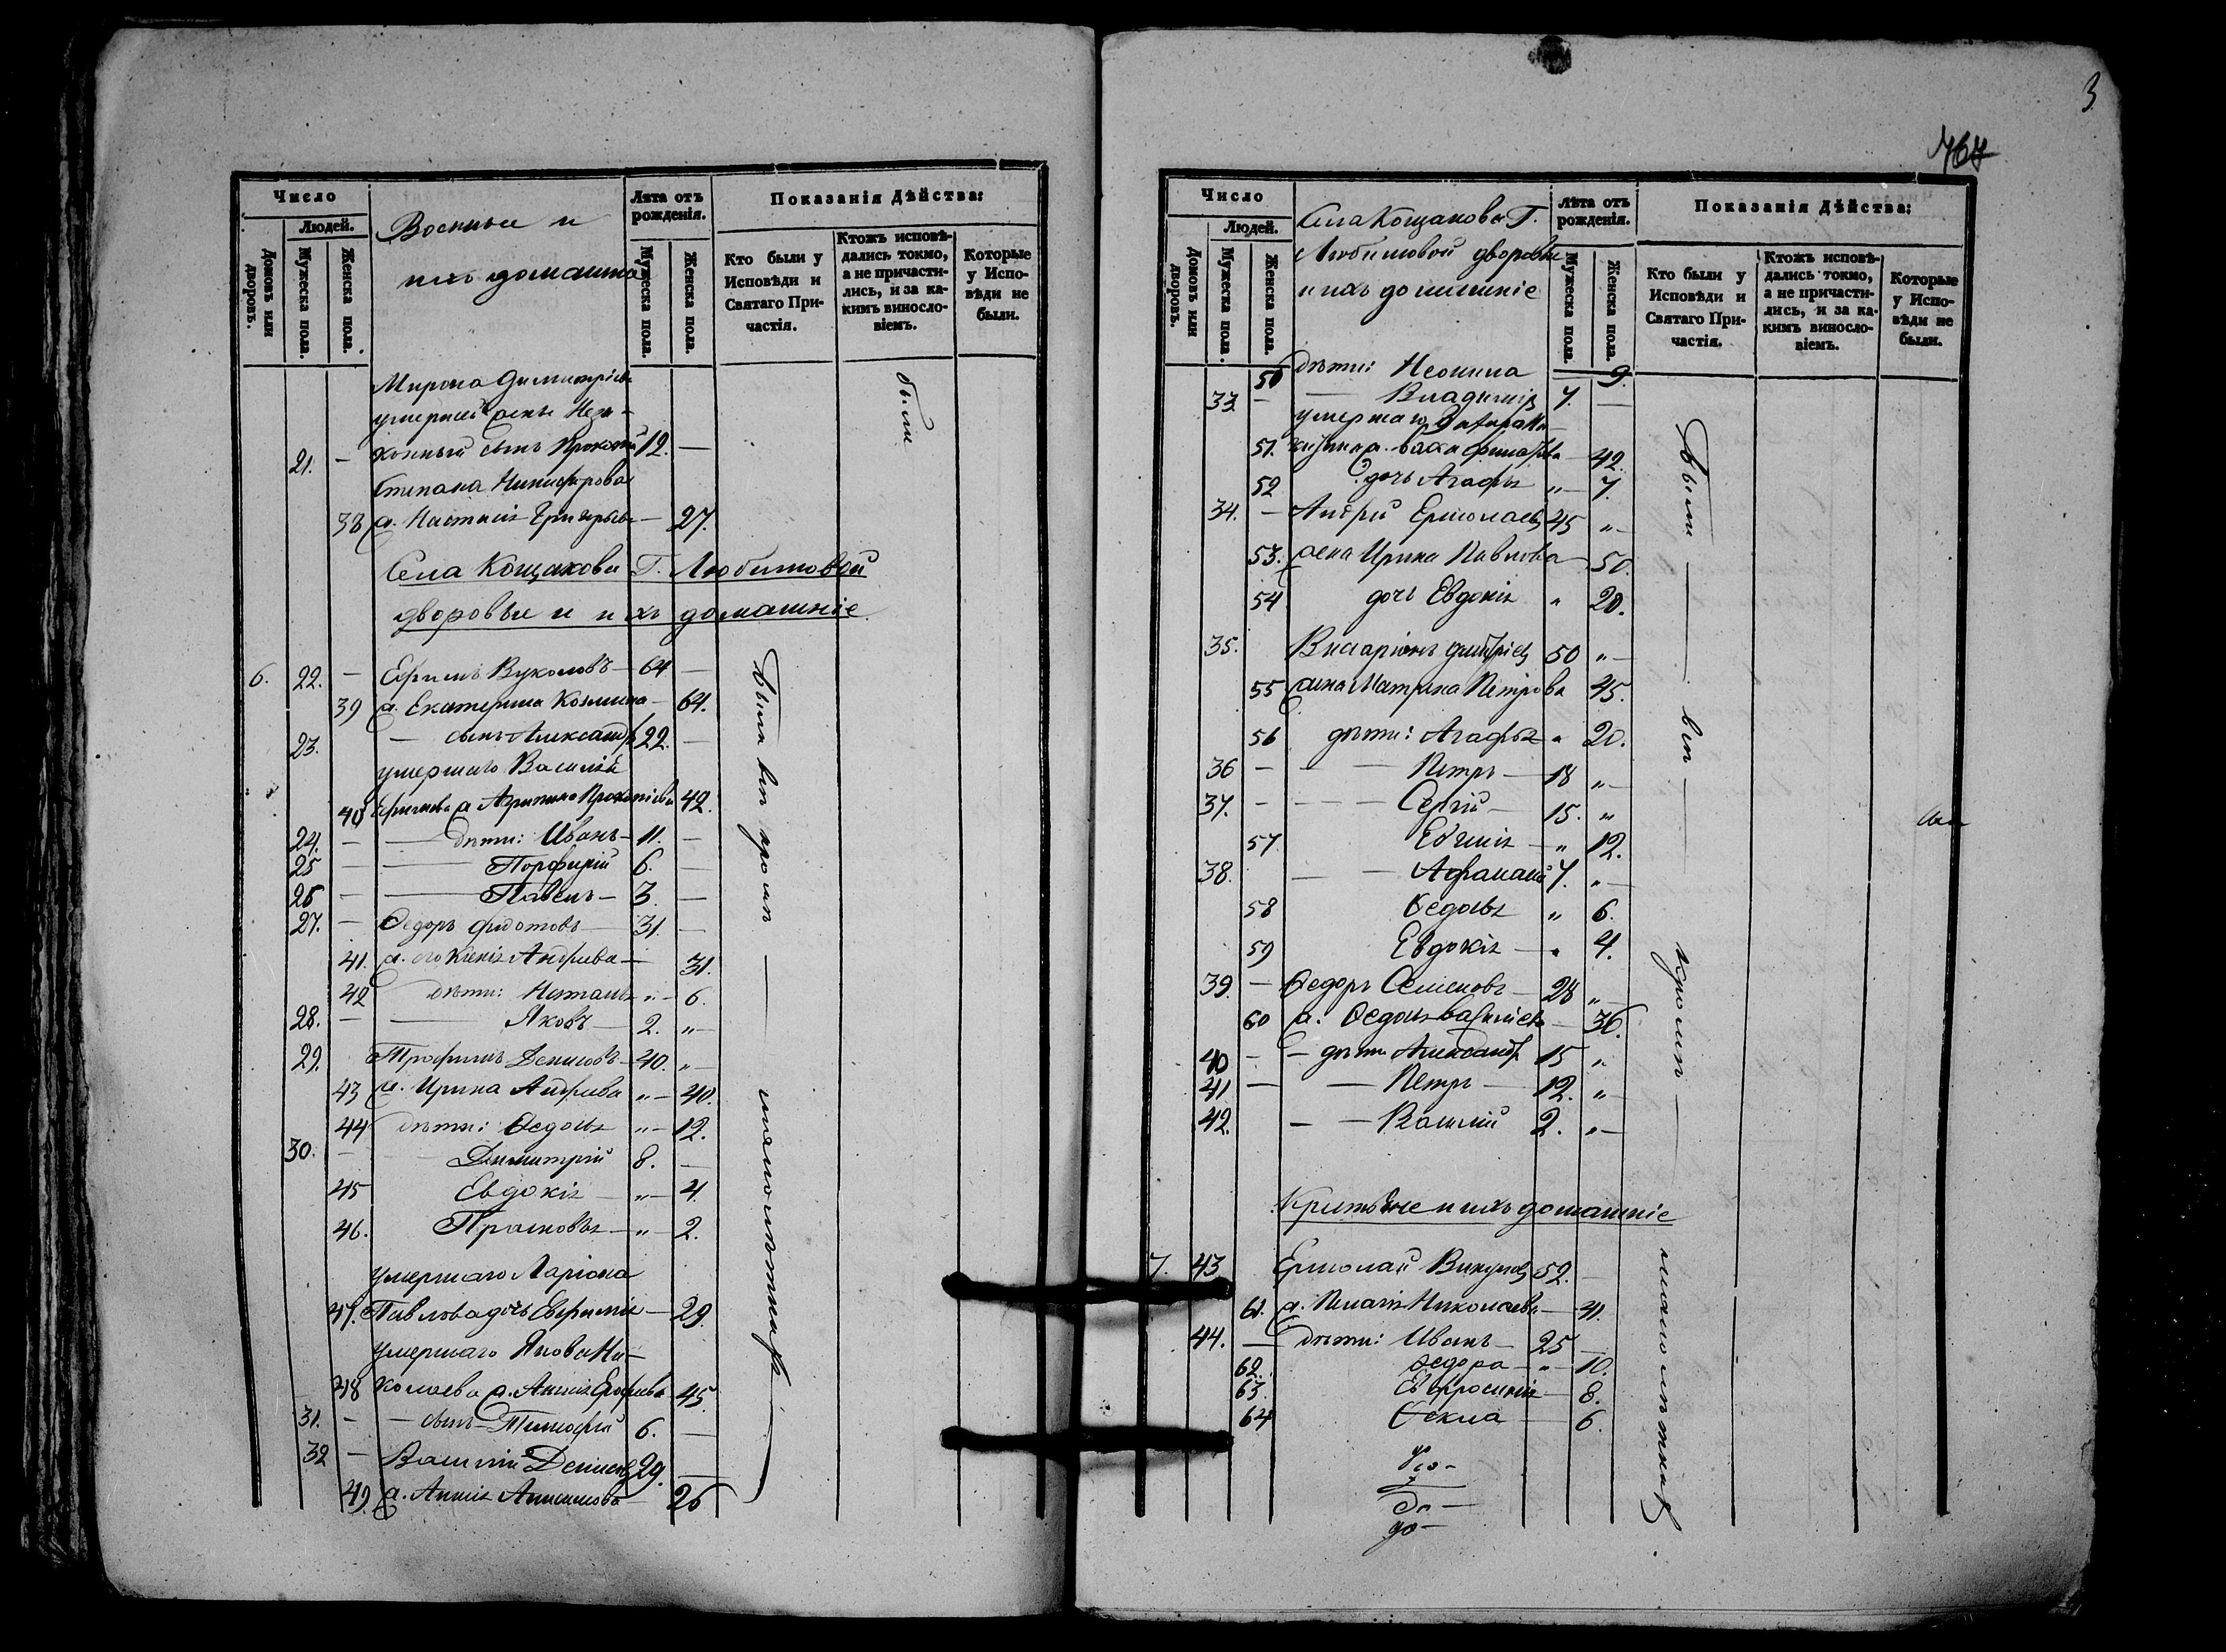 Число
Людей.
Домовъ или дворовъ.
Мужеска пола.
Женска пола.
Военные и
ихъ домашніе
Лѣта отъ рожденія.
Мужеска пола.
Женска пола.
Показанія Дѣйства:
Кто были у Исповѣди и Святаго Причастія.
Ктожъ исповѣдались токмо, а не причастились, и за какимъ винословіемъ.
Которые у Исповѣди не были.
Мирона Димитріева
умершей жены Неза-
21. — конный сынъ Прокопій 12. —
Степана Никифорова
38 ж. Настасія Григорьева — 27.
были
Села Кощакова Г. Любимовой
дворовые и ихъ домашніе
6. 22. — Ефимъ Вуколовъ — 64 —
39 ж. Екатерина Козмина — 64.
23. — сынъ Александръ 22. —
умершаго Василія
40 Ефимова ж. Агрипина Прокопіева 42.
24. — дѣти: Иванъ — 11. —
25 — Порфирій 6. —
26 — Павелъ — 3. —
27. — Ѳедоръ Федотовъ 31. —
41. ж. его Ксенія Андреева — 31.
42 дѣти: Наталья „ — 6.
28. — Яковъ — 2. „ —
29. Трофимъ Денисовъ — 40. „ —
43 ж. Ирина Андреева „ — 40.
44 дѣти: Ѳедосья „ — 12.
30. — Димитрій 8. —
45 Евдокія — „ — 4.
46. Прасковья — „ — 2.
умершаго Ларіона
47. Павлова дочь Евфимія — 29.
умершаго Якова Ни-
48 колаева ж. Анисія Ерофеева 45.
31. — сынъ Тимофей 6. —
32 — Василій Денисовъ 29. —
49. ж. Анисія Анисимова — 26
Были вси кромѣ — малолѣтнихъ
3.
767
Число
Людей.
Домовъ или дворовъ.
Мужеска пола.
Женска пола.
Села Кощакова Г.
Любимовой дворовые
и ихъ домашніе
Лѣта отъ рожденія.
Мужеска пола.
Женска пола.
Показанія Дѣйства:
Кто были у Исповѣди и Святаго Причастія.
Ктожъ исповѣдались токмо, а не причастились, и за какимъ винословіемъ.
Которые у Исповѣди не были.
50 дѣти: Неонила — 9.
33. — Владиміръ 7. —
умершаго
51. 42.
52 дочь Агафья „ — 7.
34. — Андрей Ермолаевъ 45 „ —
53. жена Ирина Павлова — 50.
54 дочь Евдокія „ 20.
35. Висаріонъ Дмитріевъ 50 „ —
55 жена Матрена Петрова 45.
56 дѣти: Агафья „ 20.
36 — Петръ — 18 „ —
37. — Сергій — 15. „
57 „ 12.
38. — Афанасій 7. „ —
58 Ѳедосья „ 6.
59 Евдокія — „ 4.
39. — Ѳедоръ Семеновъ — 28 „ —
60 ж. Ѳедосья Васильева — 36.
40 — дѣти Александръ 15 „
41 — Петръ — 12. „
42. — Василій 2. „ —
Были — вси — кромѣ — малолѣтнихъ
Крестьяне и ихъ домашніе
7. 43 Ермолай Викуловъ 52. —
61. ж. Пелагія Николаева — 41.
44. — дѣти: Иванъ — 25 —
62. Ѳедора — „ — 10.
63. Евфросинія — 8.
64 Ѳекла — 6.